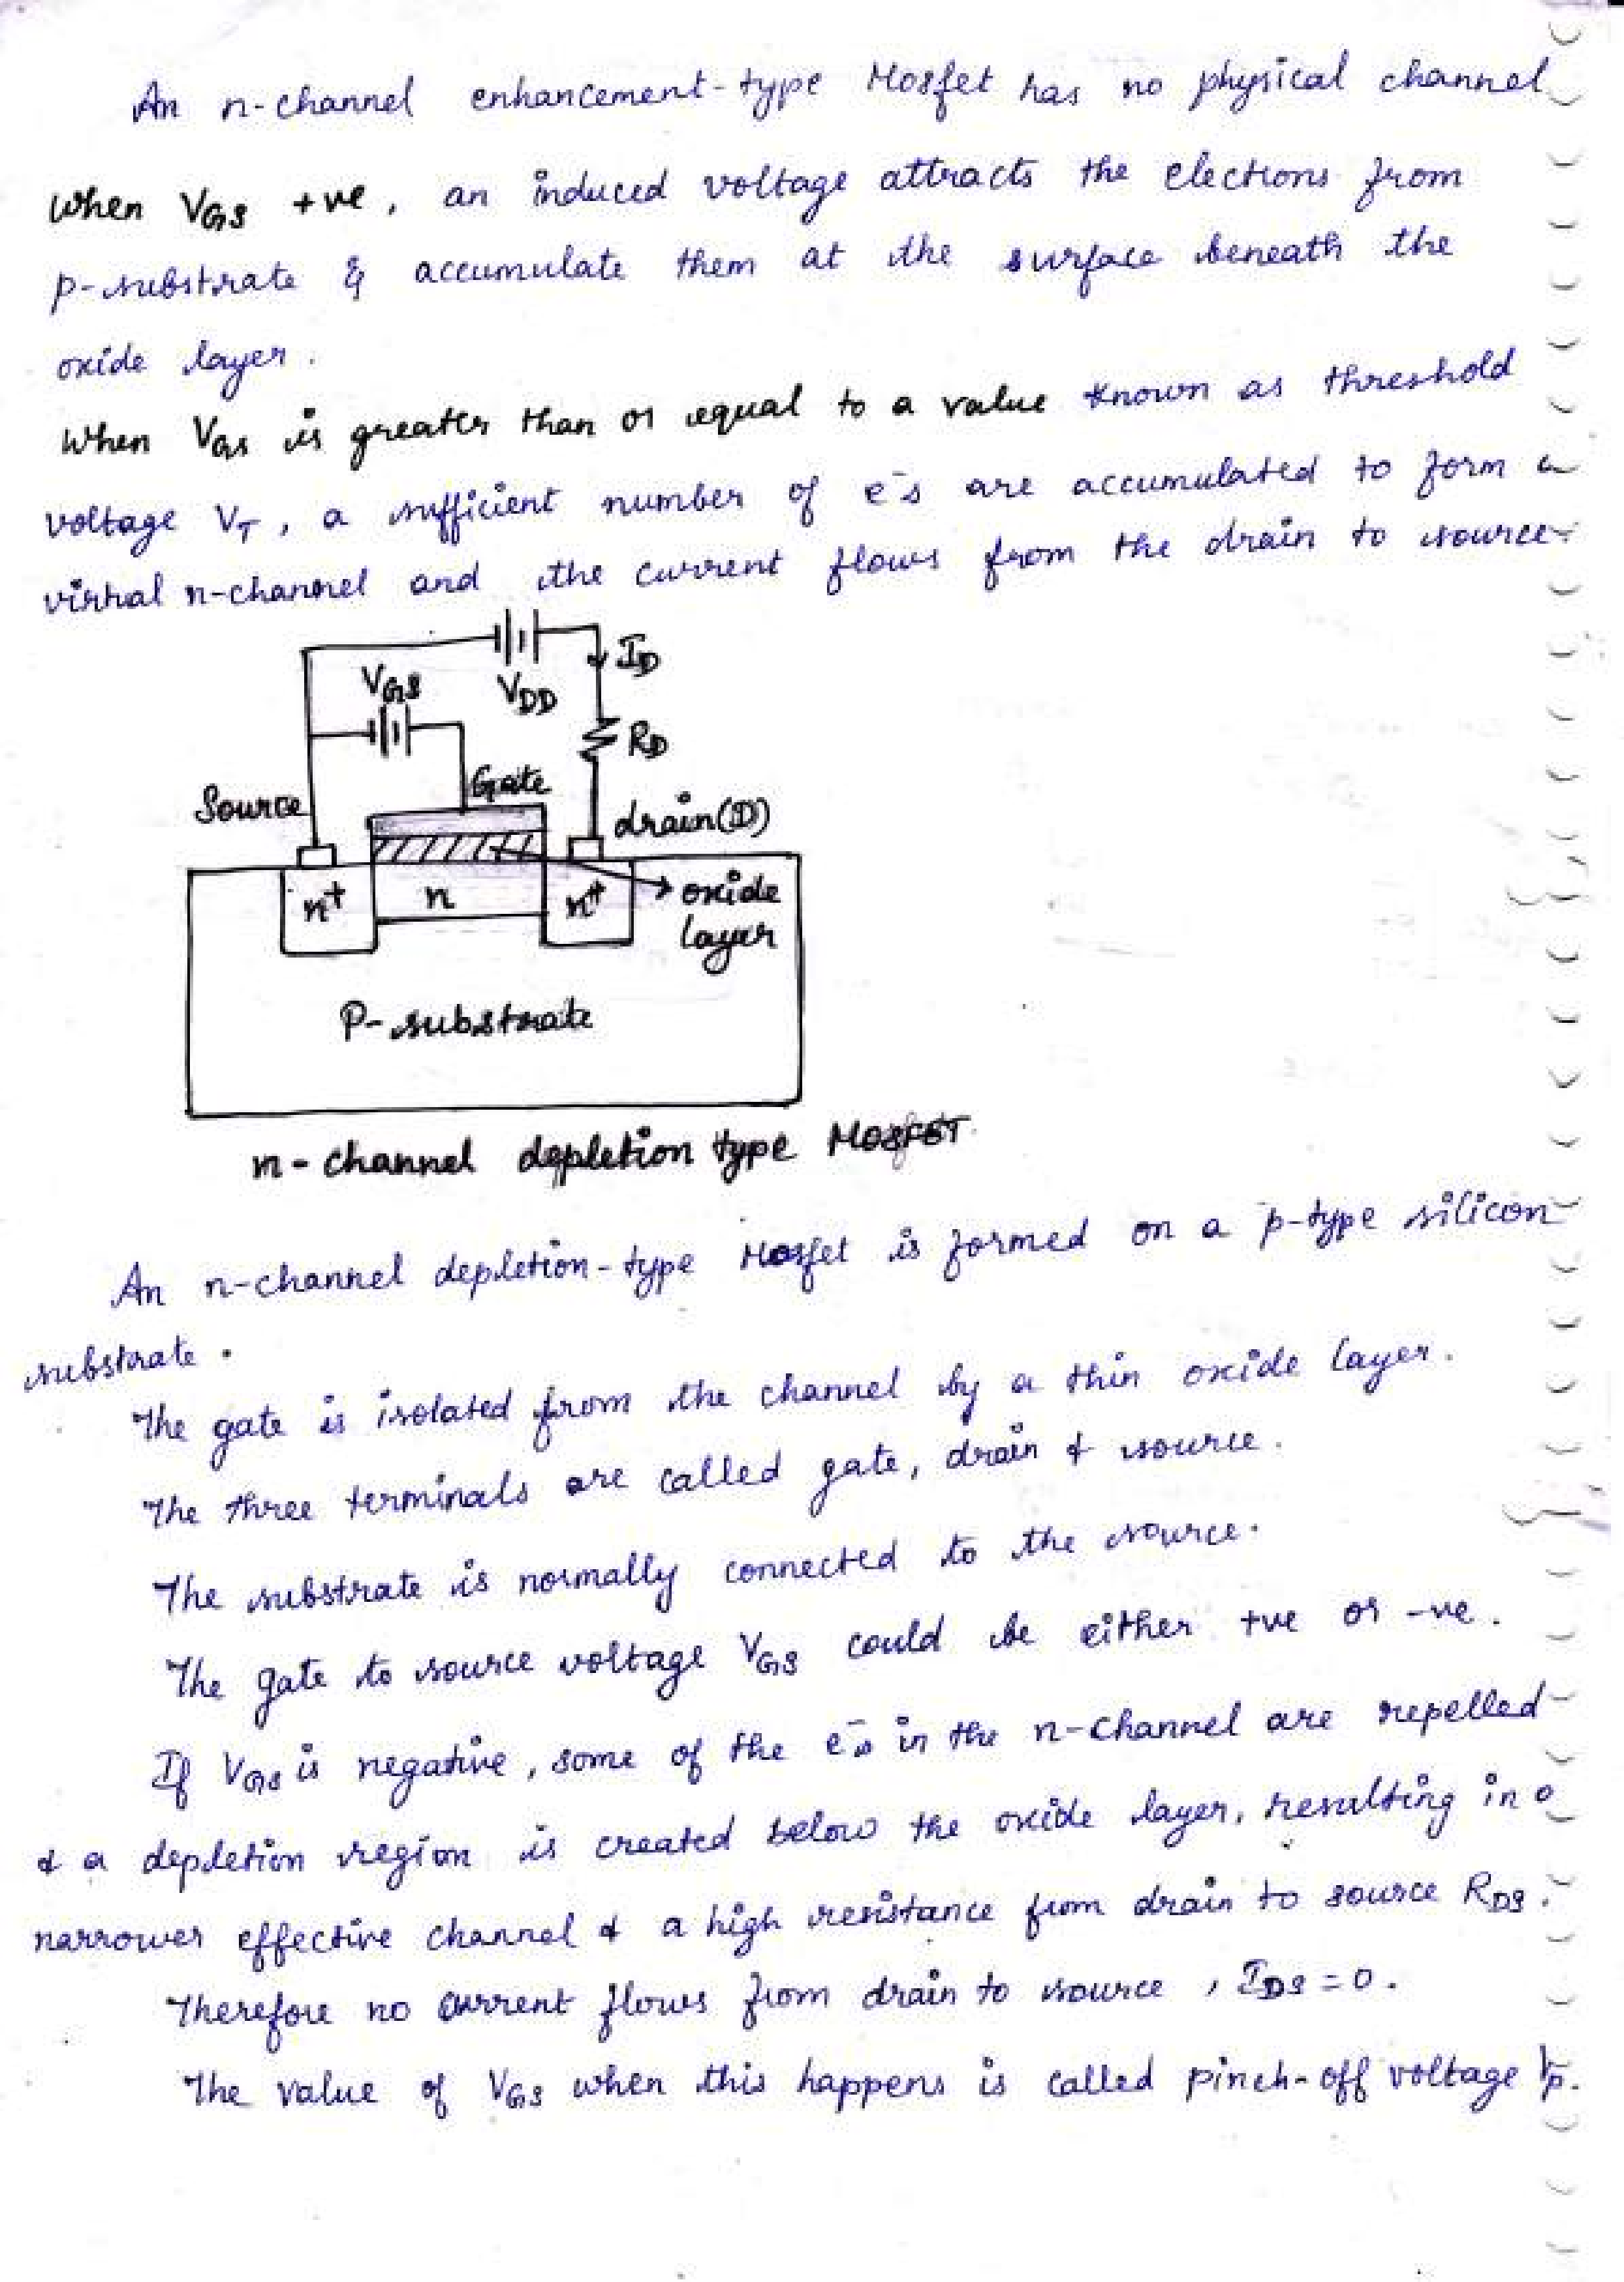 An n-channel enhancement-type Mosfet has no physical channel
When VGS +ve, an induced voltage attracts the electrons from
p-substrate & accumulate them at the surface beneath the
oxide layer.
When VGS is greater than or equal to a value known as threshold
voltage VT, a sufficient number of e⁻s are accumulated to form a
virtual n-channel and the current flows from the drain to source
ID
VGS
VDD
RD
Gate
Source
drain(D)
n+
n
n+
oxide
layer
P-substrate
n-channel depletion type MOSFET
An n-channel depletion-type Mosfet is formed on a p-type silicon
substrate.
The gate is isolated from the channel by a thin oxide layer.
The three terminals are called gate, drain & source.
The substrate is normally connected to the source.
The gate to source voltage VGS could be either +ve or -ve.
If VGS is negative, some of the e⁻s in the n-channel are repelled
& a depletion region is created below the oxide layer, resulting in a
narrower effective channel & a high resistance from drain to source RDS.
Therefore no current flows from drain to source, IDS = 0.
The value of VGS when this happens is called pinch-off voltage Vp.